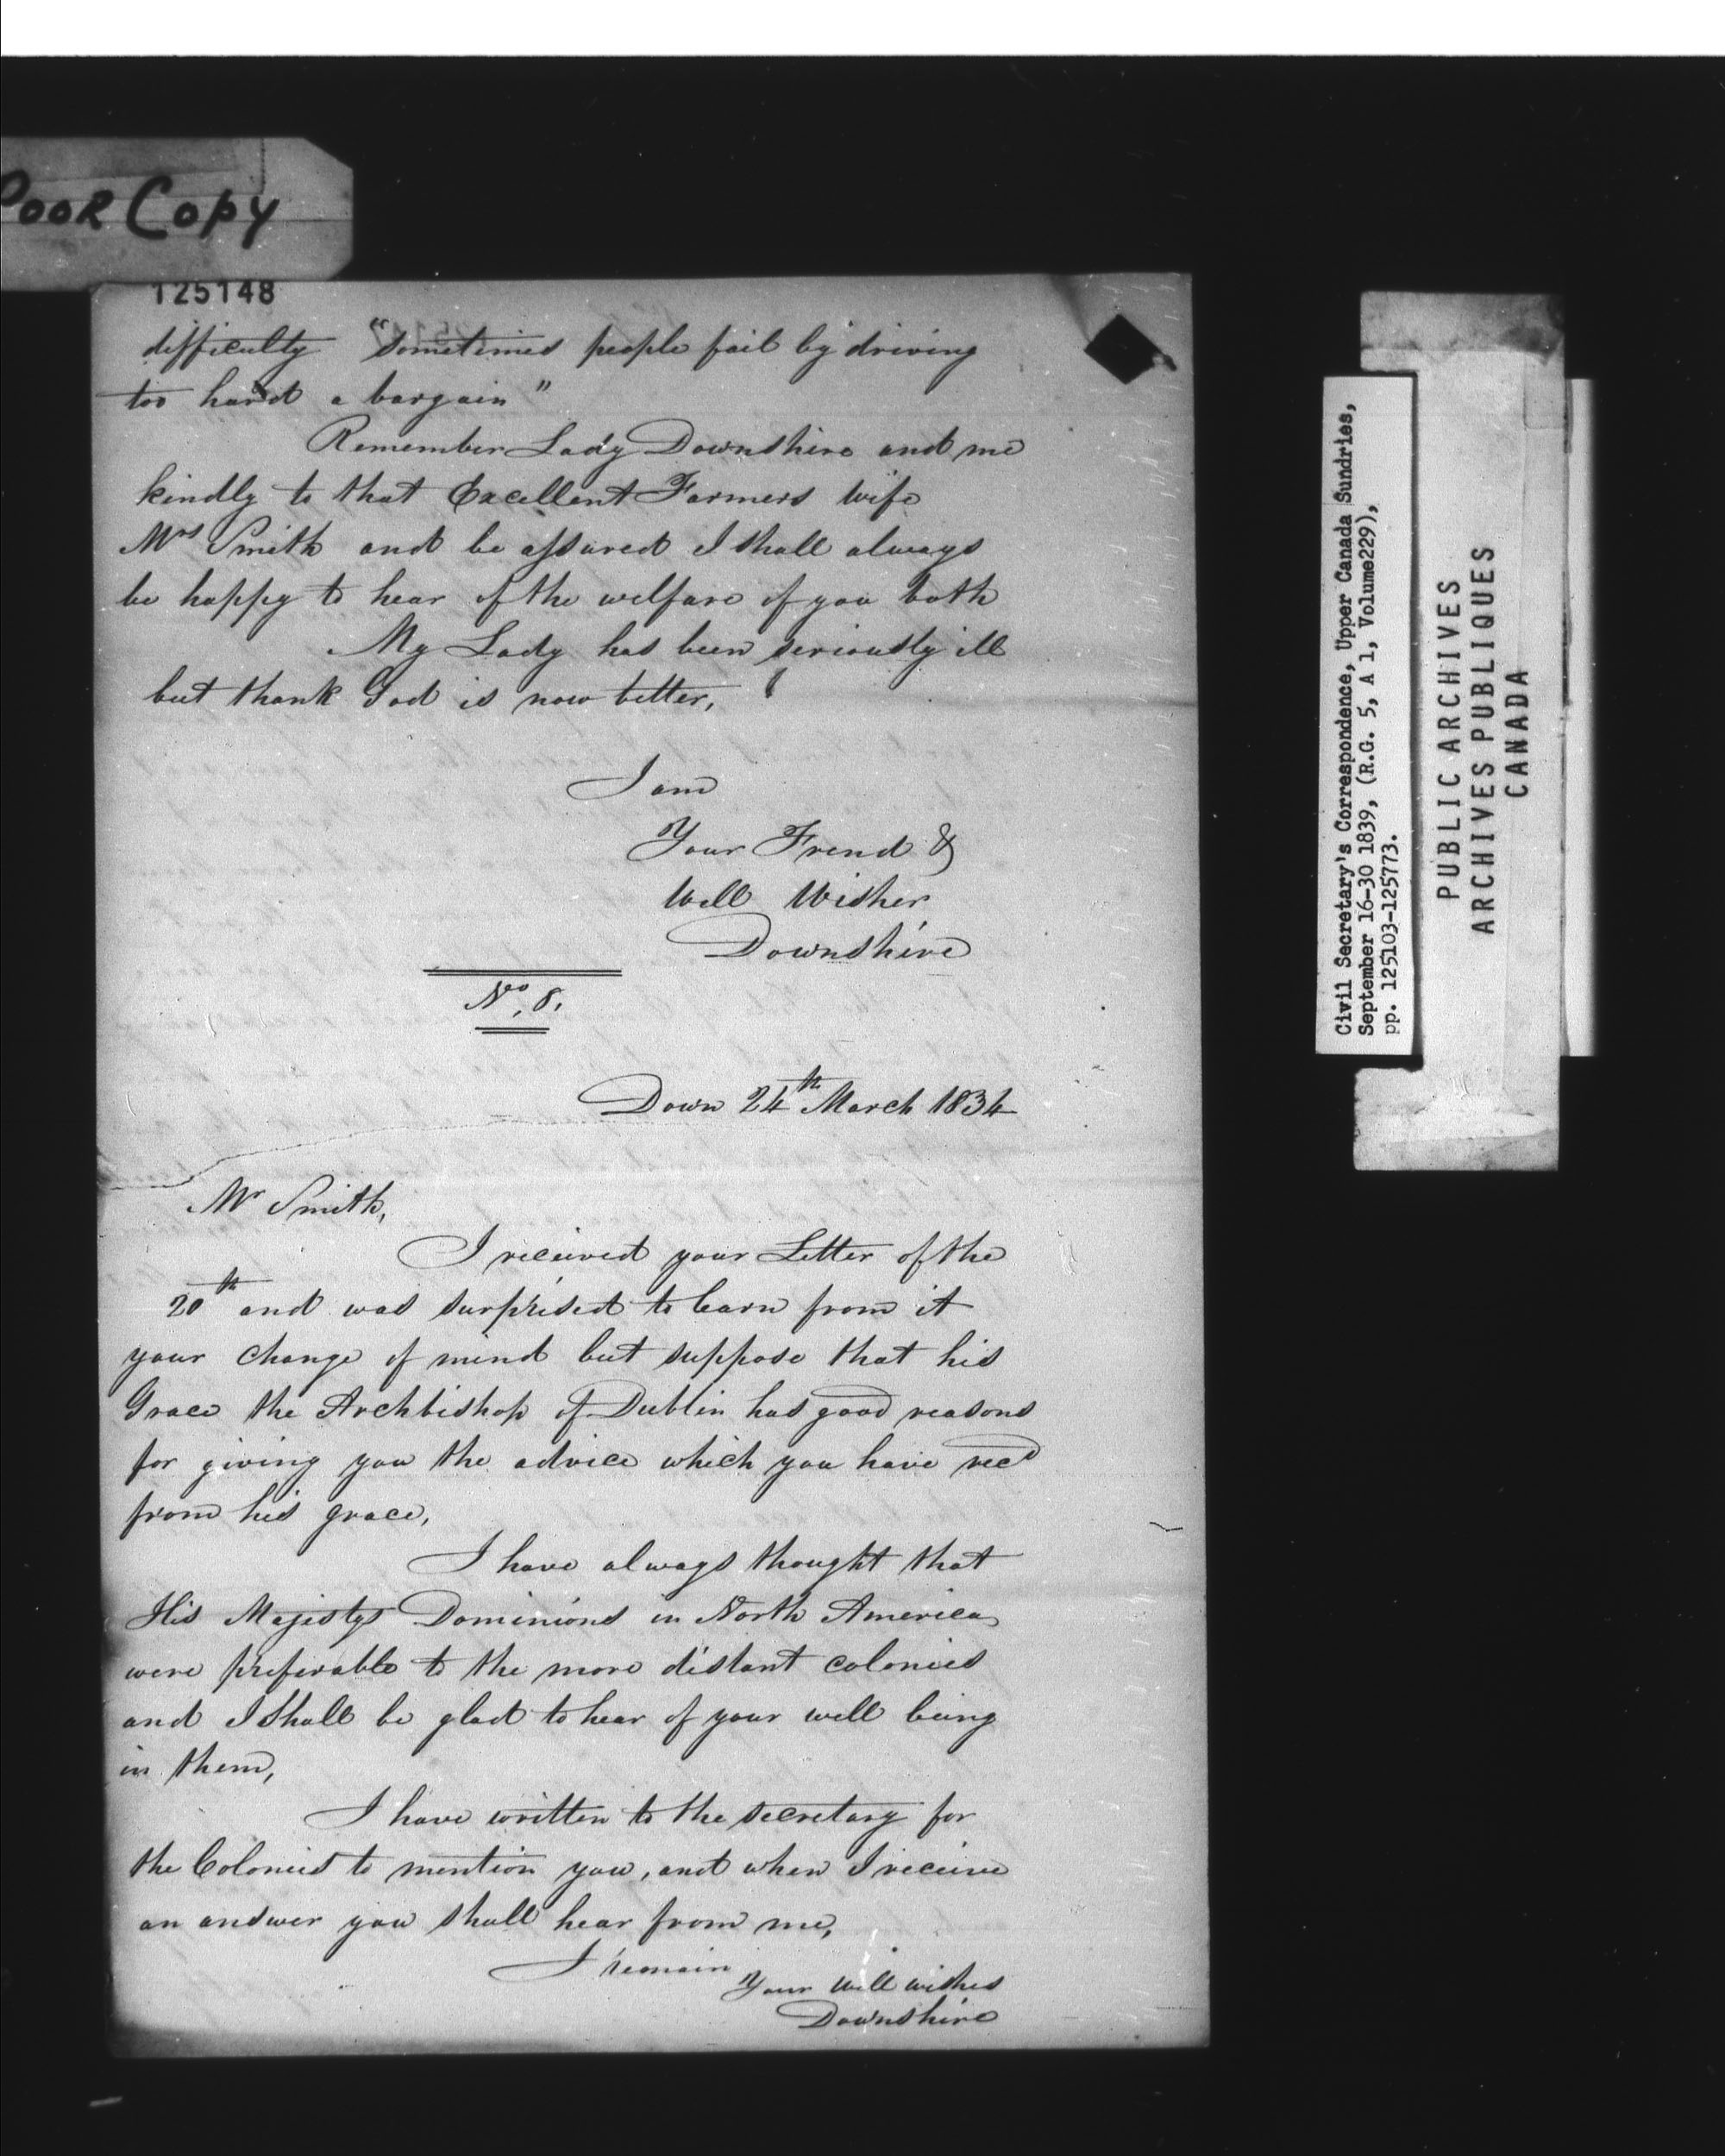 Poor Copy
125148
difficulty "sometimes people fail by driving
too hard a bargain"
Remember Lady Downshire and me
kindly to that Excellent Farmers wife
Mrs Smith and be assured I shall always
be happy to hear of the welfare of you both
My Lady has been seriously ill
but thank God is now better,
I am
Your Frend &
Well Wisher
Downshire
No, 8,
Down 24th March 1834
Mr Smith,
I received your Letter of the
20th and was surprised to learn from it
your change of mind but suppose that his
Grace the Archbishop of Dublin has good reasons
for giving you the advice which you have recd
from his grace,
I have always thought that
His Majestys Dominions in North America
were preferable to the more distant colonies
and I Shall be glad to hear of your well being
in them,
I have written to the secretary for
the Colonies to mention you, and when I receive
an answer you shall hear from me,
I remain
Your well wisher
Downshire
Civil Secretary's Correspondence, Upper Canada Sundries,
September 16-30 1839, (R.G. 5, A 1, Volume229),
pp. 125103-125773.
PUBLIC ARCHIVES
ARCHIVES PUBLIQUES
CANADA